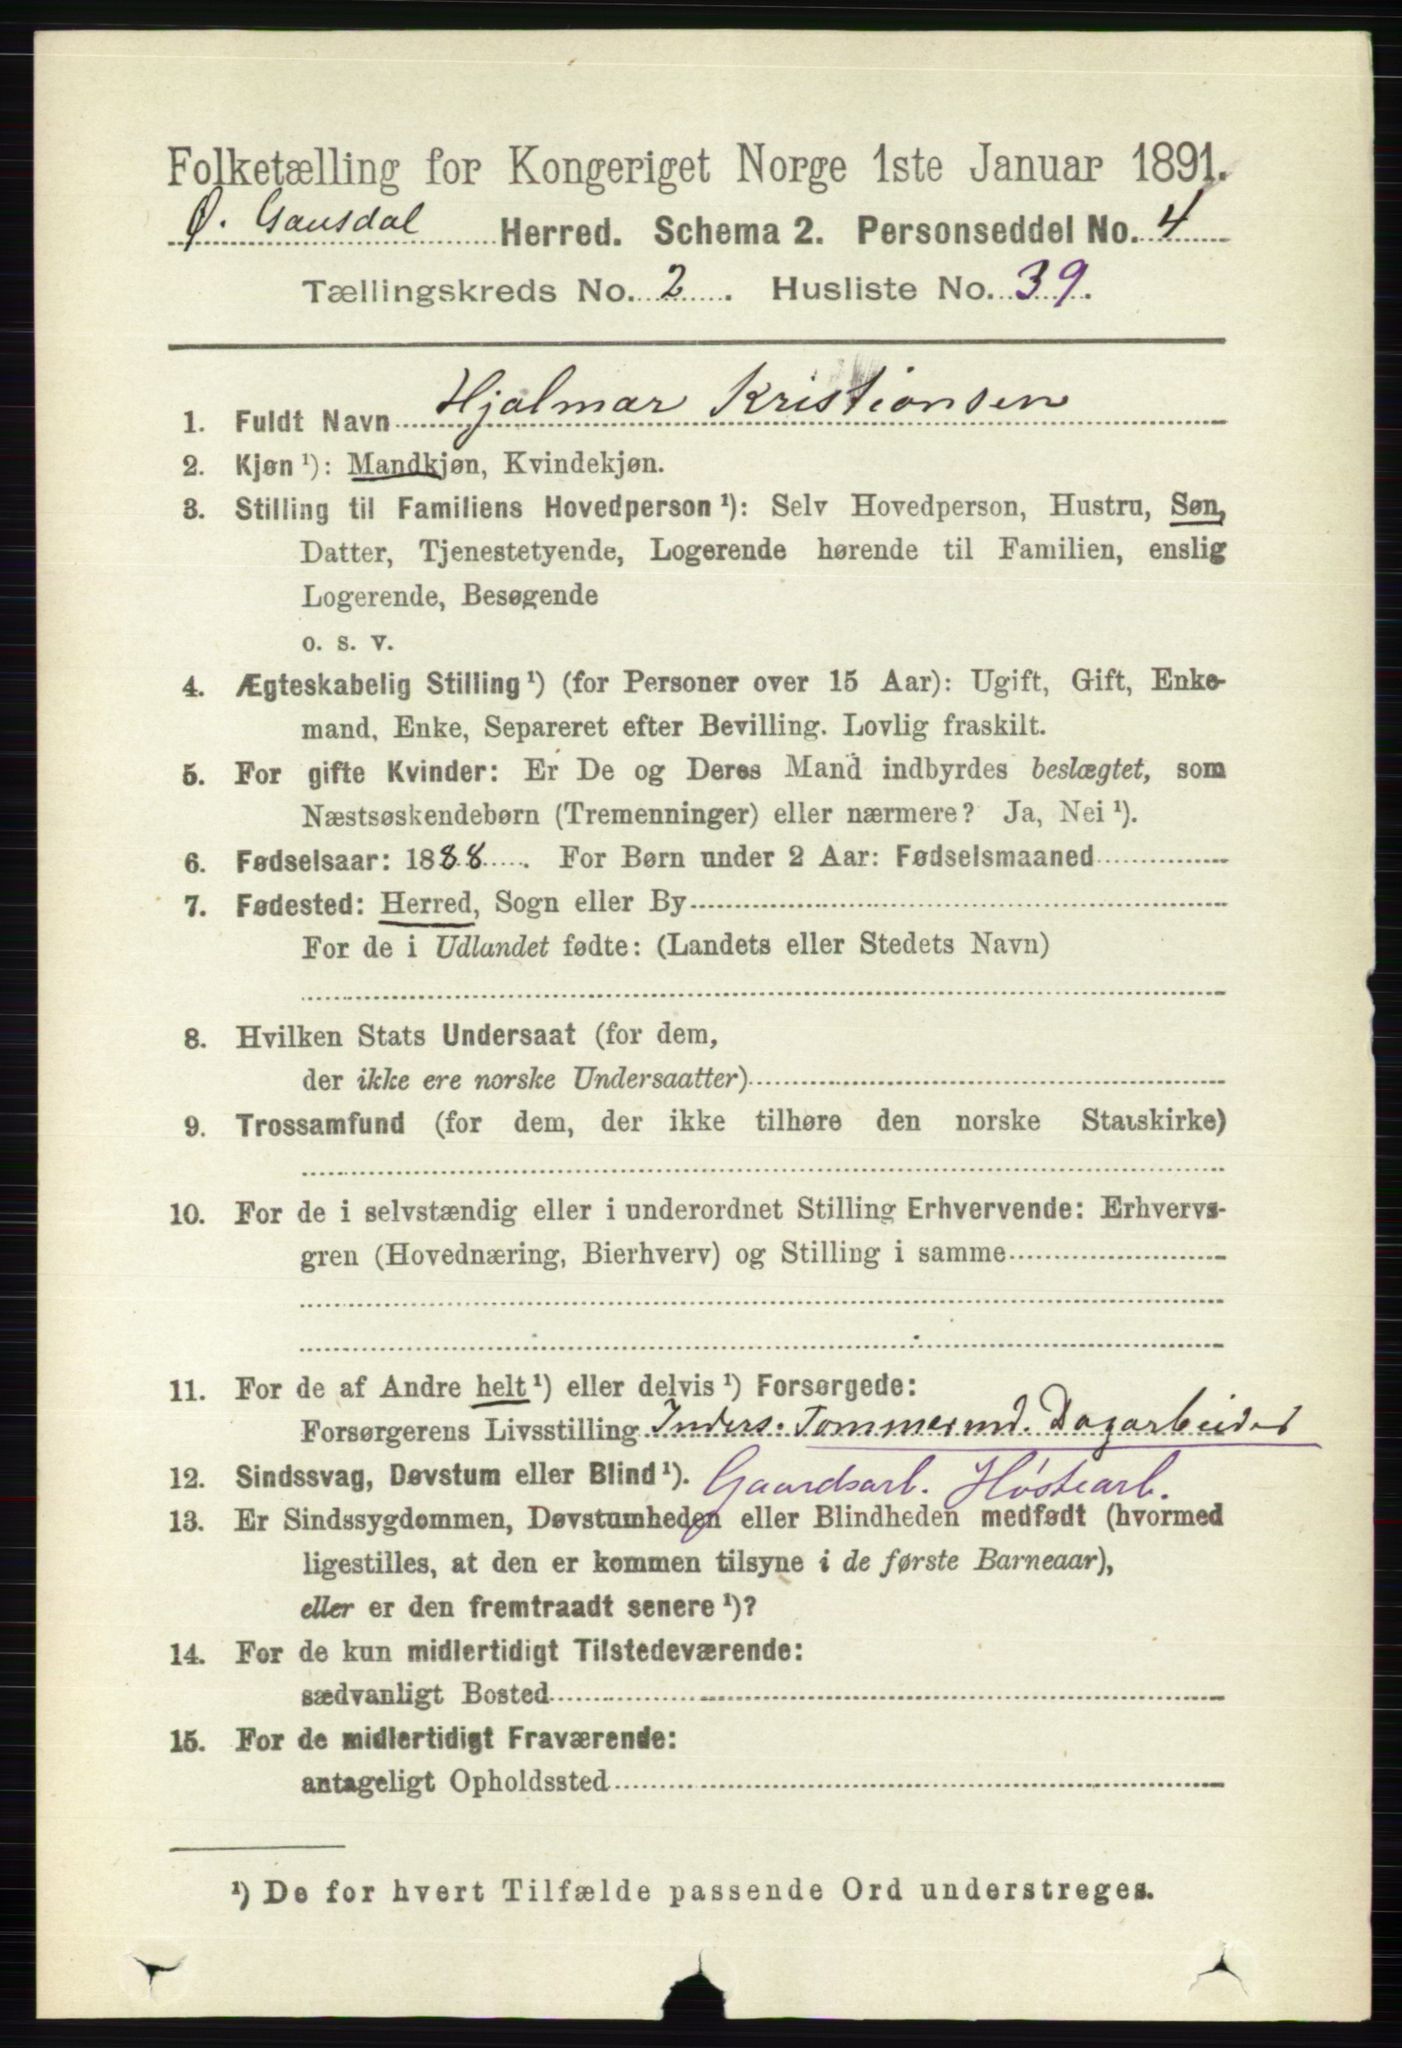 Folketælling for Kongeriget Norge 1ste Januar 1891.
Ø. Gausdal Herred. Schema 2. Personseddel No. 4
Tællingskreds No. 2. Husliste No. 39.
1. Fuldt Navn Hjalmar Kristiansen
2. Kjøn ¹): Mandkjøn, Kvindekjøn.
3. Stilling til Familiens Hovedperson ¹): Selv Hovedperson, Hustru, Søn,
Datter, Tjenestetyende, Logerende hørende til Familien, enslig
Logerende, Besøgende
o. s. v.
4. Ægteskabelig Stilling ¹) (for Personer over 15 Aar): Ugift, Gift, Enke-
mand, Enke, Separeret efter Bevilling. Lovlig fraskilt.
5. For gifte Kvinder: Er De og Deres Mand indbyrdes beslægtet, som
Næstsøskendebørn (Tremenninger) eller nærmere? Ja, Nei ¹).
6. Fødselsaar: 1888. For Børn under 2 Aar: Fødselsmaaned
7. Fødested: Herred, Sogn eller By
For de i Udlandet fødte: (Landets eller Stedets Navn)
8. Hvilken Stats Undersaat (for dem,
der ikke ere norske Undersaatter)
9. Trossamfund (for dem, der ikke tilhøre den norske Statskirke)
10. For de i selvstændig eller i underordnet Stilling Erhvervende: Erhvervs-
gren (Hovednæring, Bierhverv) og Stilling i samme
11. For de af Andre helt ¹) eller delvis ¹) Forsørgede:
Forsørgerens Livsstilling Inders. Tømmermd. Dagarbeider
12. Sindssvag, Døvstum eller Blind ¹). Gaardsarb. Høstearb.
13. Er Sindssygdommen, Døvstumheden eller Blindheden medfødt (hvormed
ligestilles, at den er kommen tilsyne i de første Barneaar),
eller er den fremtraadt senere ¹)?
14. For de kun midlertidigt Tilstedeværende:
sædvanligt Bosted
15. For de midlertidigt Fraværende:
antageligt Opholdssted
¹) De for hvert Tilfælde passende Ord understreges.